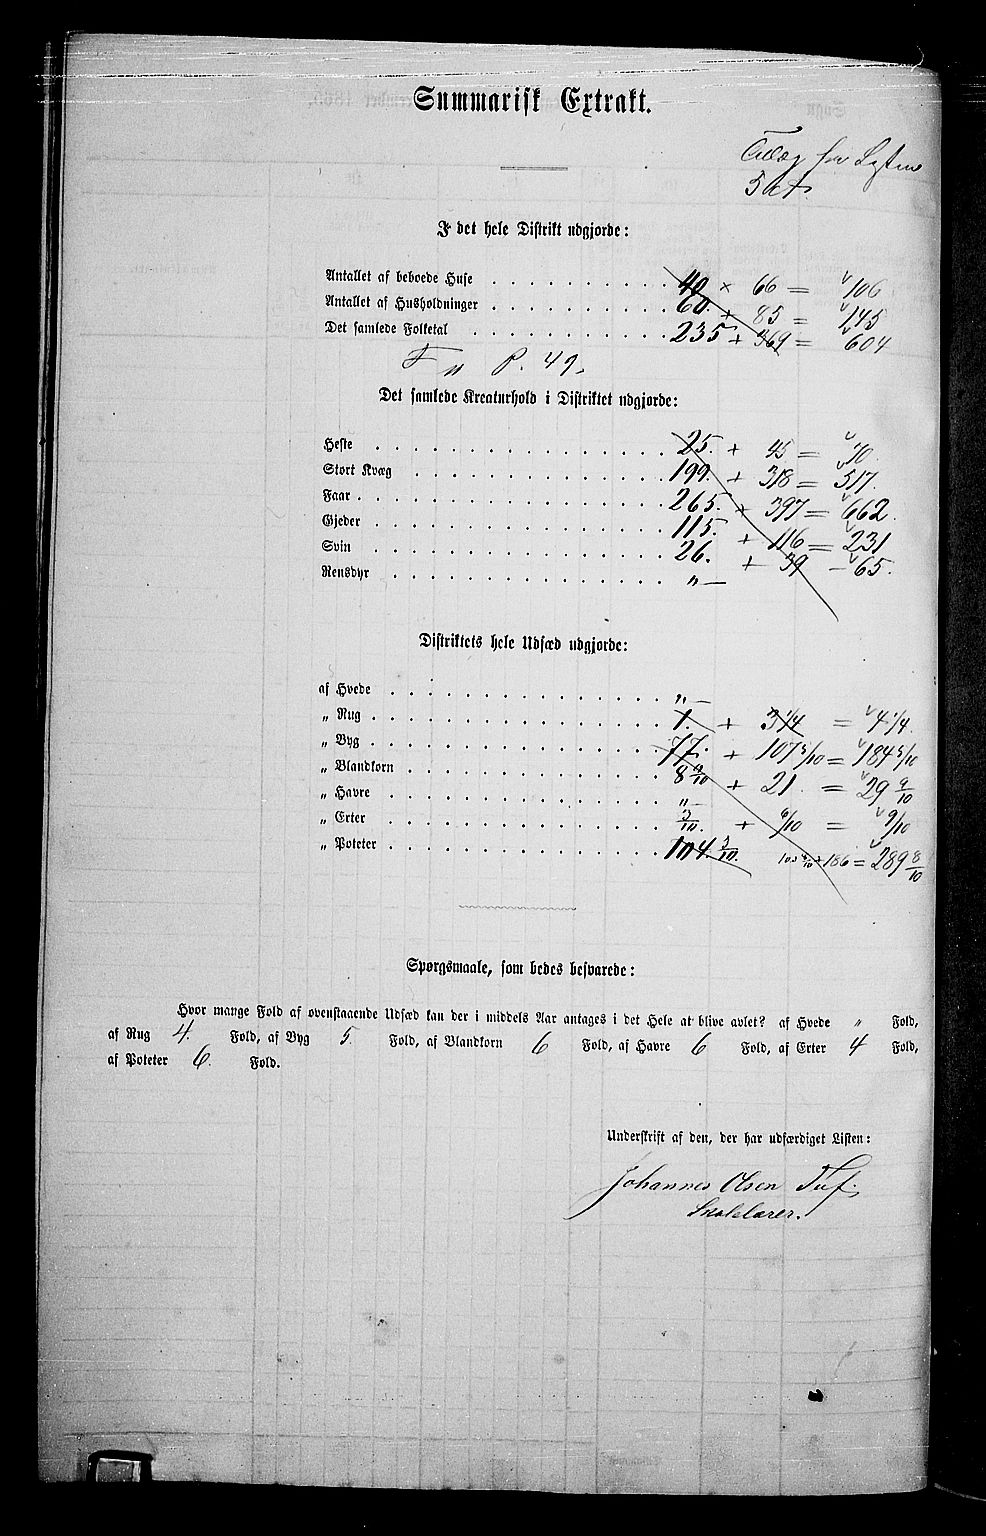 Summarisk Extrakt.
5 
I det hele Distrikt udgjorde:
Antallet af beboede Huse . . . . . . . . . . 40 × 66 = 106
Antallet af Husholdninger . . . . . . . . . . 60. + 85 = 145
Det samlede Folketal . . . . . . . . . . 235 + 369 = 604
P. 49.
Det samlede Kreaturhold i Distriktet udgjorde:
Heste . . . . . . . . . . 25. + 45 = 70
Stort Kvæg . . . . . . . . . . 199. + 318 = 517.
Faar . . . . . . . . . . 265. + 397 = 662.
Gjeder . . . . . . . . . . 115. + 116 = 231
Svin . . . . . . . . . . 26. + 39 — 65.
Rensdyr . . . . . . . . . . „ —
Distriktets hele Udsæd udgjorde:
af Hvede . . . . . . . . . . „ —
„ Rug . . . . . . . . . . 1. + 3 1/4 = 4 1/4.
„ Byg . . . . . . . . . . 77. + 107 /10 = 184 /10
„ Blandkorn . . . . . . . . . . 8 9/10 + 21. = 29 9/10
„ Havre . . . . . . . . . . „ —
„ Erter . . . . . . . . . . 3/10. + 6/10 = 9/10
„ Poteter . . . . . . . . . . 104. 3/10. + 186 = 289 8/10
Spørgsmaale, som bedes besvarede:
Hvor mange Fold af ovenstaaende Udsæd kan der i middels Aar antages i det Hele at blive avlet? af Hvede „ Fold,
af Rug 4. Fold, af Byg 5. Fold, af Blandkorn 6 Fold, af Havre 6 Fold, af Erter 4 Fold,
af Poteter 6. Fold.
Underskrift af den, der har udfærdiget Listen:
Johannes Olsen Tuf.
Skolelærer.